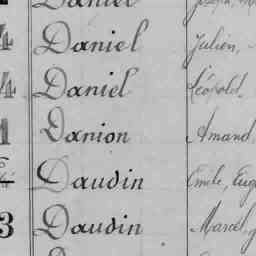 Daniel
4 Daniel Julien,
4 Daniel Léopold,
1 Danion Amand
Daudin Emile, Eug
3 Daudin Marcel, J